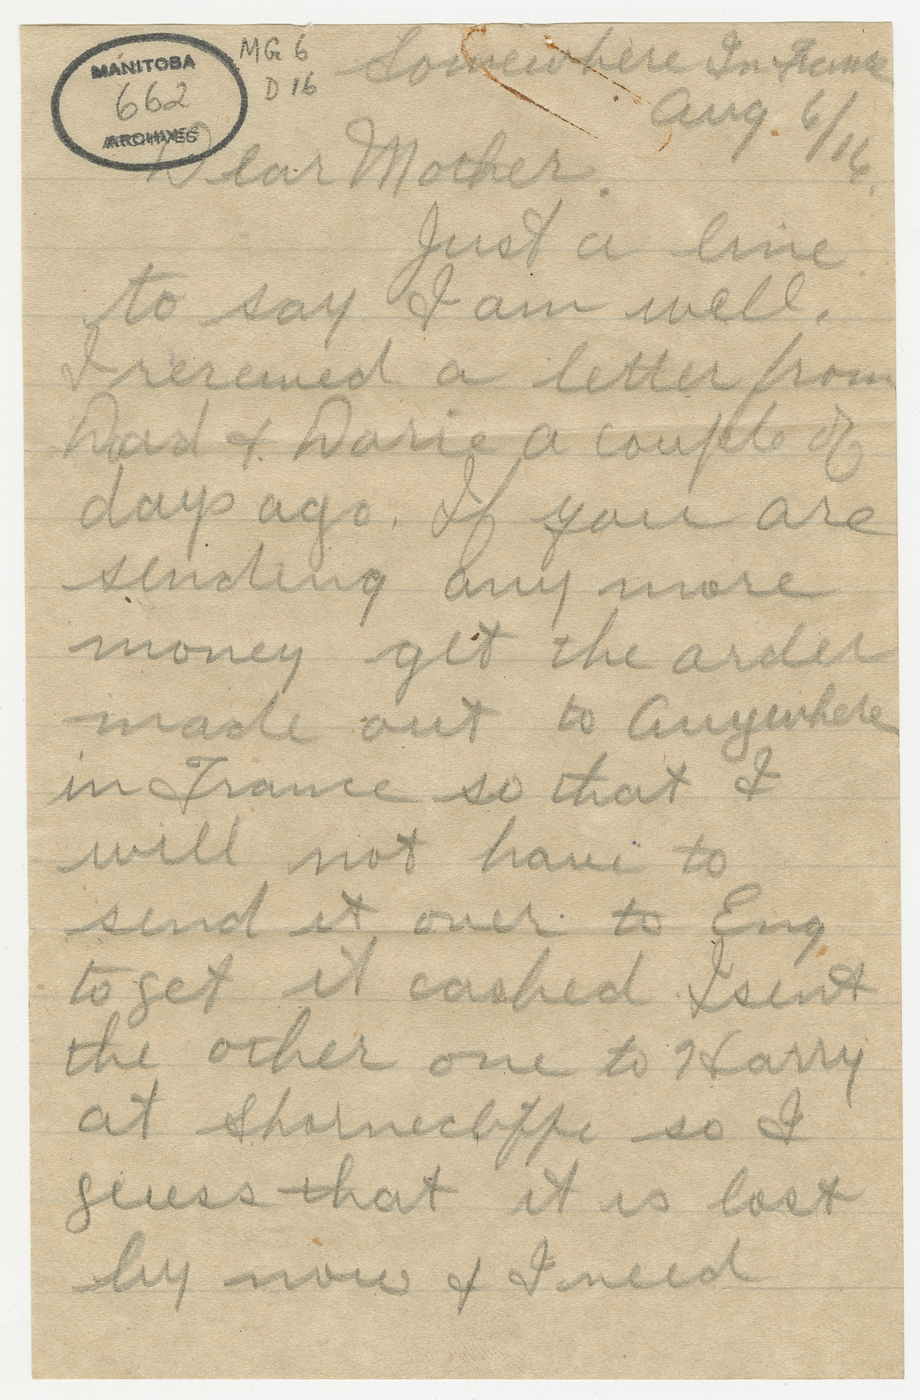 MANITOBA
662
ARCHIVES
MG 6
D 16
Somewhere In France
Aug 6/16.
Dear Mother.
Just a line
to say I am well.
I rereived a letter from
Dad & Dorie a couple of
days ago. If you are
sending any more
money get the order
made out to Anywhere
in France so that I
will not have to
send it over to Eng
to get it cashed I sent
the other one to Harry
at Shornecliffe so I
guess that it is lost
by now & I need